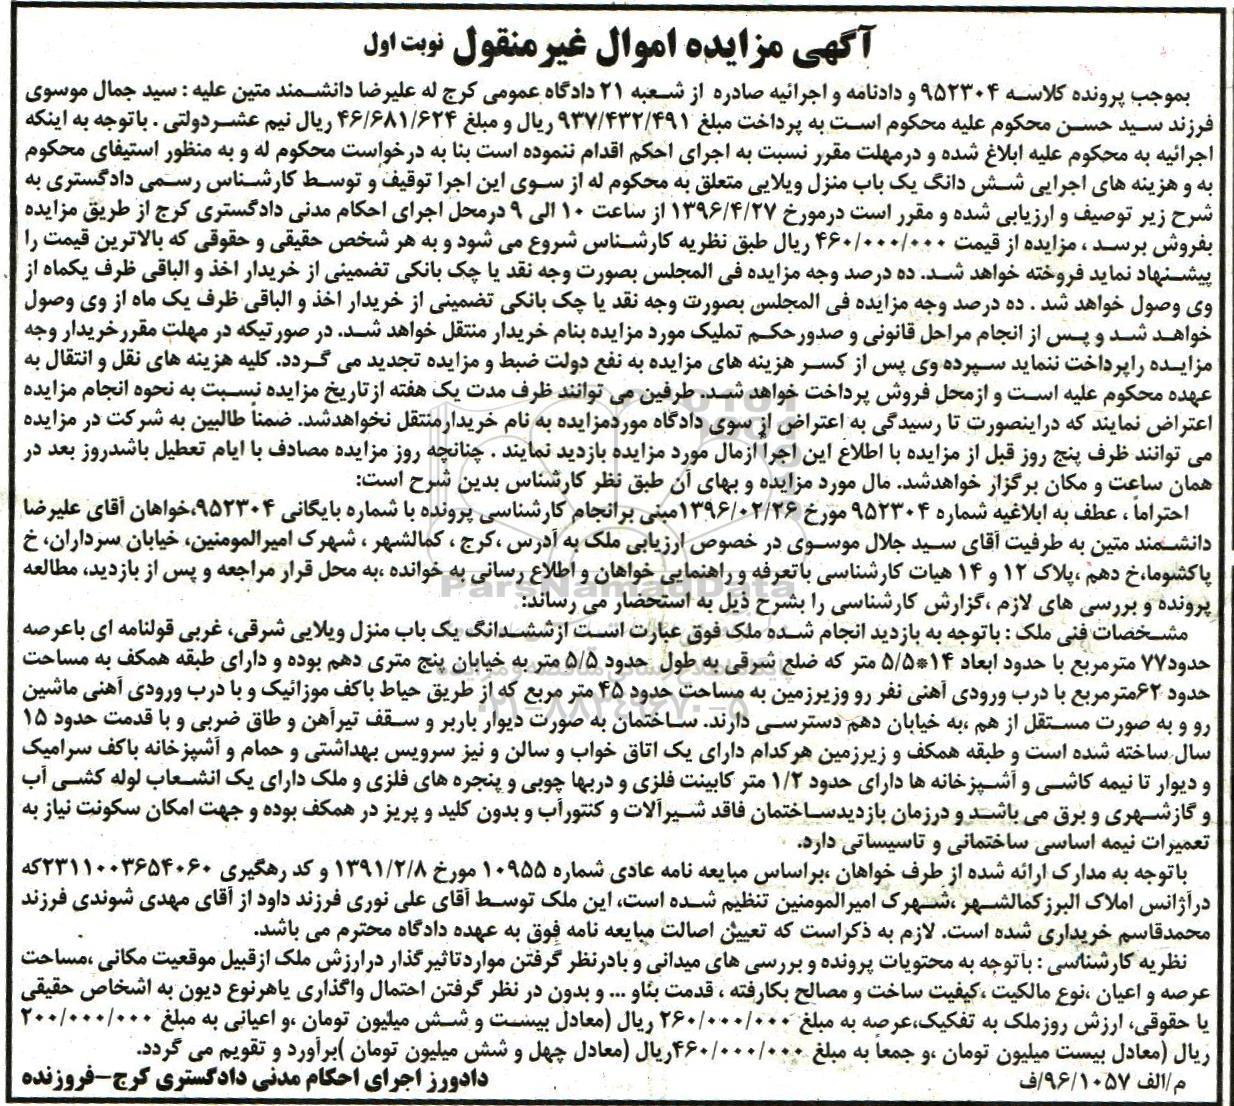 آگهی مزایده اموال غیرمنقول نوبت اول
بموجب پرونده کلاسه ۹۵۲۳۰۴ و دادنامه و اجرائیه صادره از شعبه ۲۱ دادگاه عمومی کرج له علیرضا دانشمند متین علیه : سید جمال موسوی
فرزند سید حسن محکوم علیه محکوم است به پرداخت مبلغ ۹۳۷/۴۳۲/۴۹۱ ریال و مبلغ ۴۶/۶۸۱/۶۲۴ ریال نیم عشردولتی . باتوجه به اینکه
اجرائیه به محکوم علیه ابلاغ شده و درمهلت مقرر نسبت به اجرای احکم اقدام ننموده است بنا به درخواست محکوم له و به منظور استیفای محکوم
به و هزینه های اجرایی شش دانگ یک باب منزل ویلایی متعلق به محکوم له از سوی این اجرا توقیف و توسط کارشناس رسمی دادگستری به
شرح زیر توصیف و ارزیابی شده و مقرر است درمورخ ۱۳۹۶/۴/۲۷ از ساعت ۱۰ الی ۹ درمحل اجرای احکام مدنی دادگستری کرج از طریق مزایده
بفروش برسد ، مزایده از قیمت ۴۶۰/۰۰۰/۰۰۰ ریال طبق نظریه کارشناس شروع می شود و به هر شخص حقیقی و حقوقی که بالاترین قیمت را
پیشنهاد نماید فروخته خواهد شد. ده درصد وجه مزایده فی المجلس بصورت وجه نقد یا چک بانکی تضمینی از خریدار اخذ و الباقی ظرف یکماه از
وی وصول خواهد شد . ده درصد وجه مزایده فی المجلس بصورت وجه نقد یا چک بانکی تضمینی از خریدار اخذ و الباقی ظرف یک ماه از وی وصول
خواهد شد و پس از انجام مراحل قانونی و صدورحکم تملیک مورد مزایده بنام خریدار منتقل خواهد شد. در صورتیکه در مهلت مقررخریدار وجه
مزایده راپرداخت ننماید سپرده وی پس از کسر هزینه های مزایده به نفع دولت ضبط و مزایده تجدید می گردد. کلیه هزینه های نقل و انتقال به
عهده محکوم علیه است و ازمحل فروش پرداخت خواهد شد. طرفین می توانند ظرف مدت یک هفته ازتاریخ مزایده نسبت به نحوه انجام مزایده
اعتراض نمایند که دراینصورت تا رسیدگی به اعتراض از سوی دادگاه موردمزایده به نام خریدارمنتقل نخواهدشد. ضمناً طالبین به شرکت در مزایده
می توانند ظرف پنج روز قبل از مزایده با اطلاع این اجرا ازمال مورد مزایده بازدید نمایند . چنانچه روز مزایده مصادف با ایام تعطیل باشدروز بعد در
همان ساعت و مکان برگزار خواهدشد. مال مورد مزایده و بهای آن طبق نظر کارشناس بدین شرح است:
احتراماً ، عطف به ابلاغیه شماره ۹۵۲۳۰۴ مورخ ۱۳۹۶/۰۲/۲۶مبنی برانجام کارشناسی پرونده با شماره بایگانی ۹۵۲۳۰۴،خواهان آقای علیرضا
دانشمند متین به طرفیت آقای سید جلال موسوی در خصوص ارزیابی ملک به آدرس ،کرج ، کمالشهر ، شهرک امیرالمومنین، خیابان سرداران، خ
پاکشوما،خ دهم ،پلاک ۱۲ و ۱۴ هیات کارشناسی باتعرفه و راهنمایی خواهان و اطلاع رسانی به خوانده ،به محل قرار مراجعه و پس از بازدید، مطالعه
پرونده و بررسی های لازم ،گزارش کارشناسی را بشرح ذیل به استحضار می رساند:
مشخصات فنی ملک : باتوجه به بازدید انجام شده ملک فوق عبارت است ازششدانگ یک باب منزل ویلایی شرقی، غربی قولنامه ای باعرصه
حدود۷۷ مترمربع با حدود ابعاد ۱۴*۵/۵ متر که ضلع شرقی به طول حدود ۵/۵ متر به خیابان پنج متری دهم بوده و دارای طبقه همکف به مساحت
حدود ۶۲مترمربع با درب ورودی آهنی نفر رو وزیرزمین به مساحت حدود ۴۵ متر مربع که از طریق حیاط باکف موزائیک و با درب ورودی آهنی ماشین
رو و به صورت مستقل از هم ،به خیابان دهم دسترسی دارند. ساختمان به صورت دیوار باربر و سقف تیرآهن و طاق ضربی و با قدمت حدود ۱۵
سال ساخته شده است و طبقه همکف و زیرزمین هرکدام دارای یک اتاق خواب و سالن و نیز سرویس بهداشتی و حمام و آشپزخانه باکف سرامیک
و دیوار تا نیمه کاشی و آشپزخانه ها دارای حدود ۱/۲ متر کابینت فلزی و دربها چوبی و پنجره های فلزی و ملک دارای یک انشعاب لوله کشی آب
و گازشهری و برق می باشد و درزمان بازدیدساختمان فاقد شیرآلات و کنتورآب و بدون کلید و پریز در همکف بوده و جهت امکان سکونت نیاز به
تعمیرات نیمه اساسی ساختمانی و تاسیساتی دارد.
باتوجه به مدارک ارائه شده از طرف خواهان ،براساس مبایعه نامه عادی شماره ۱۰۹۵۵ مورخ ۱۳۹۱/۲/۸ و کد رهگیری ۲۳۱۱۰۰۳۶۵۴۰۶۰که
درآژانس املاک البرزکمالشهر ،شهرک امیرالمومنین تنظیم شده است، این ملک توسط آقای علی نوری فرزند داود از آقای مهدی شوندی فرزند
محمدقاسم خریداری شده است. لازم به ذکراست که تعیین اصالت مبایعه نامه فوق به عهده دادگاه محترم می باشد.
نظریه کارشناسی : باتوجه به محتویات پرونده و بررسی های میدانی و بادرنظر گرفتن مواردتاثیرگذار درارزش ملک ازقبیل موقعیت مکانی ،مساحت
عرصه و اعیان ،نوع مالکیت ،کیفیت ساخت و مصالح بکارفته ، قدمت بناو ... و بدون در نظر گرفتن احتمال واگذاری یاهرنوع دیون به اشخاص حقیقی
یا حقوقی، ارزش روزملک به تفکیک،عرصه به مبلغ ۲۶۰/۰۰۰/۰۰۰ ریال (معادل بیست و شش میلیون تومان ،و اعیانی به مبلغ ۲۰۰/۰۰۰/۰۰۰
ریال (معادل بیست میلیون تومان ،و جمعاً به مبلغ ۴۶۰/۰۰۰/۰۰۰ریال (معادل چهل و شش میلیون تومان )برآورد و تقویم می گردد.
م/الف ۹۶/۱۰۵۷/ف
دادورز اجرای احکام مدنی دادگستری کرج-فروزنده
ParsNamadData
۰۲۱-۸۸۳۴۹۶۷۰-۵